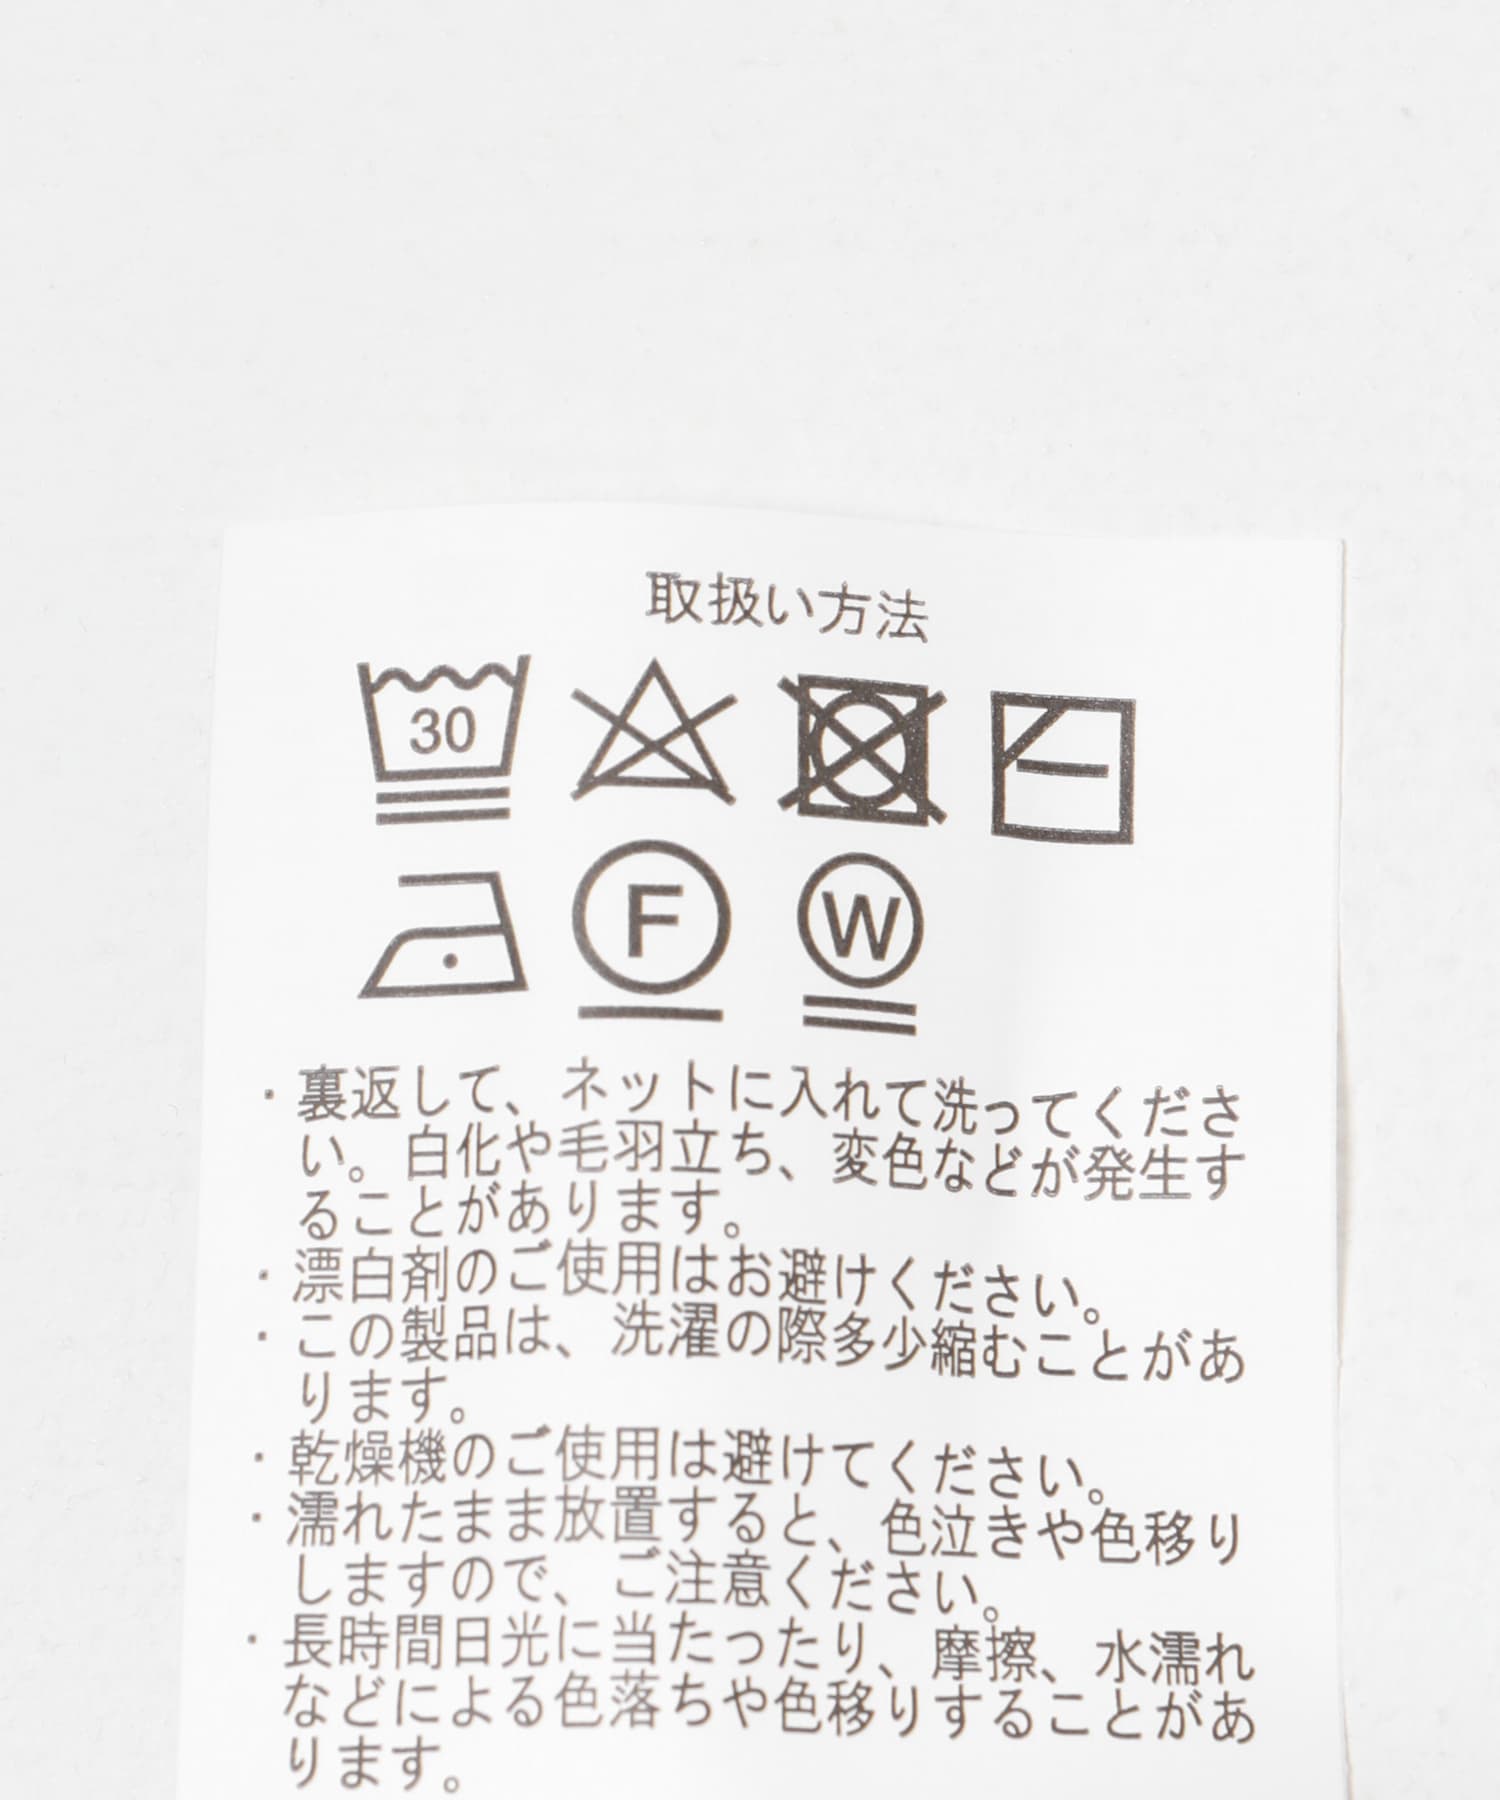 取扱い方法
30
F W
・裏返して、ネットに入れて洗ってくださ
い。白化や毛羽立ち、変色などが発生す
ることがあります。
・漂白剤のご使用はお避けください。
・この製品は、洗濯の際多少縮むことがあ
ります。
・乾燥機のご使用は避けてください。
・濡れたまま放置すると、色泣きや色移り
しますので、ご注意ください。
・長時間日光に当たったり、摩擦、水濡れ
などによる色落ちや色移りすることがあ
ります。